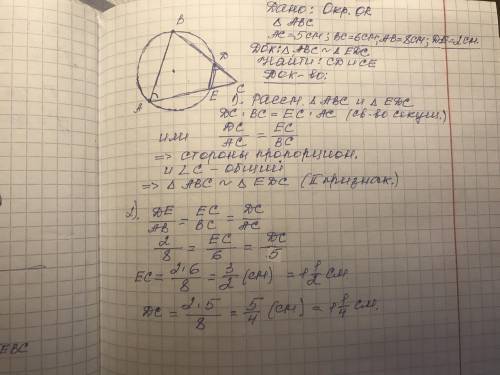 B
D
C
A
E
Дано: Окр. OR
△ ABC
AC=5см; BC=6см; AB=8см; DE=2см.
Док: △ ABC ~ △ EDC
Найти: CD и CE
Док-во:
1). Рассм. △ ABC и △ EDC
DC · BC = EC · AC (св-во секущ.)
или DC/AC = EC/BC
=> стороны пропорцион.
и ∠C - общий
=> △ ABC ~ △ EDC (II признак.)
2). DE/AB = EC/BC = DC/AC
2/8 = EC/6 = DC/5
EC = 2·6/8 = 3/2 (см) = 1 1/2 см
DC = 2·5/8 = 5/4 (см) = 1 1/4 см.
ЕВС